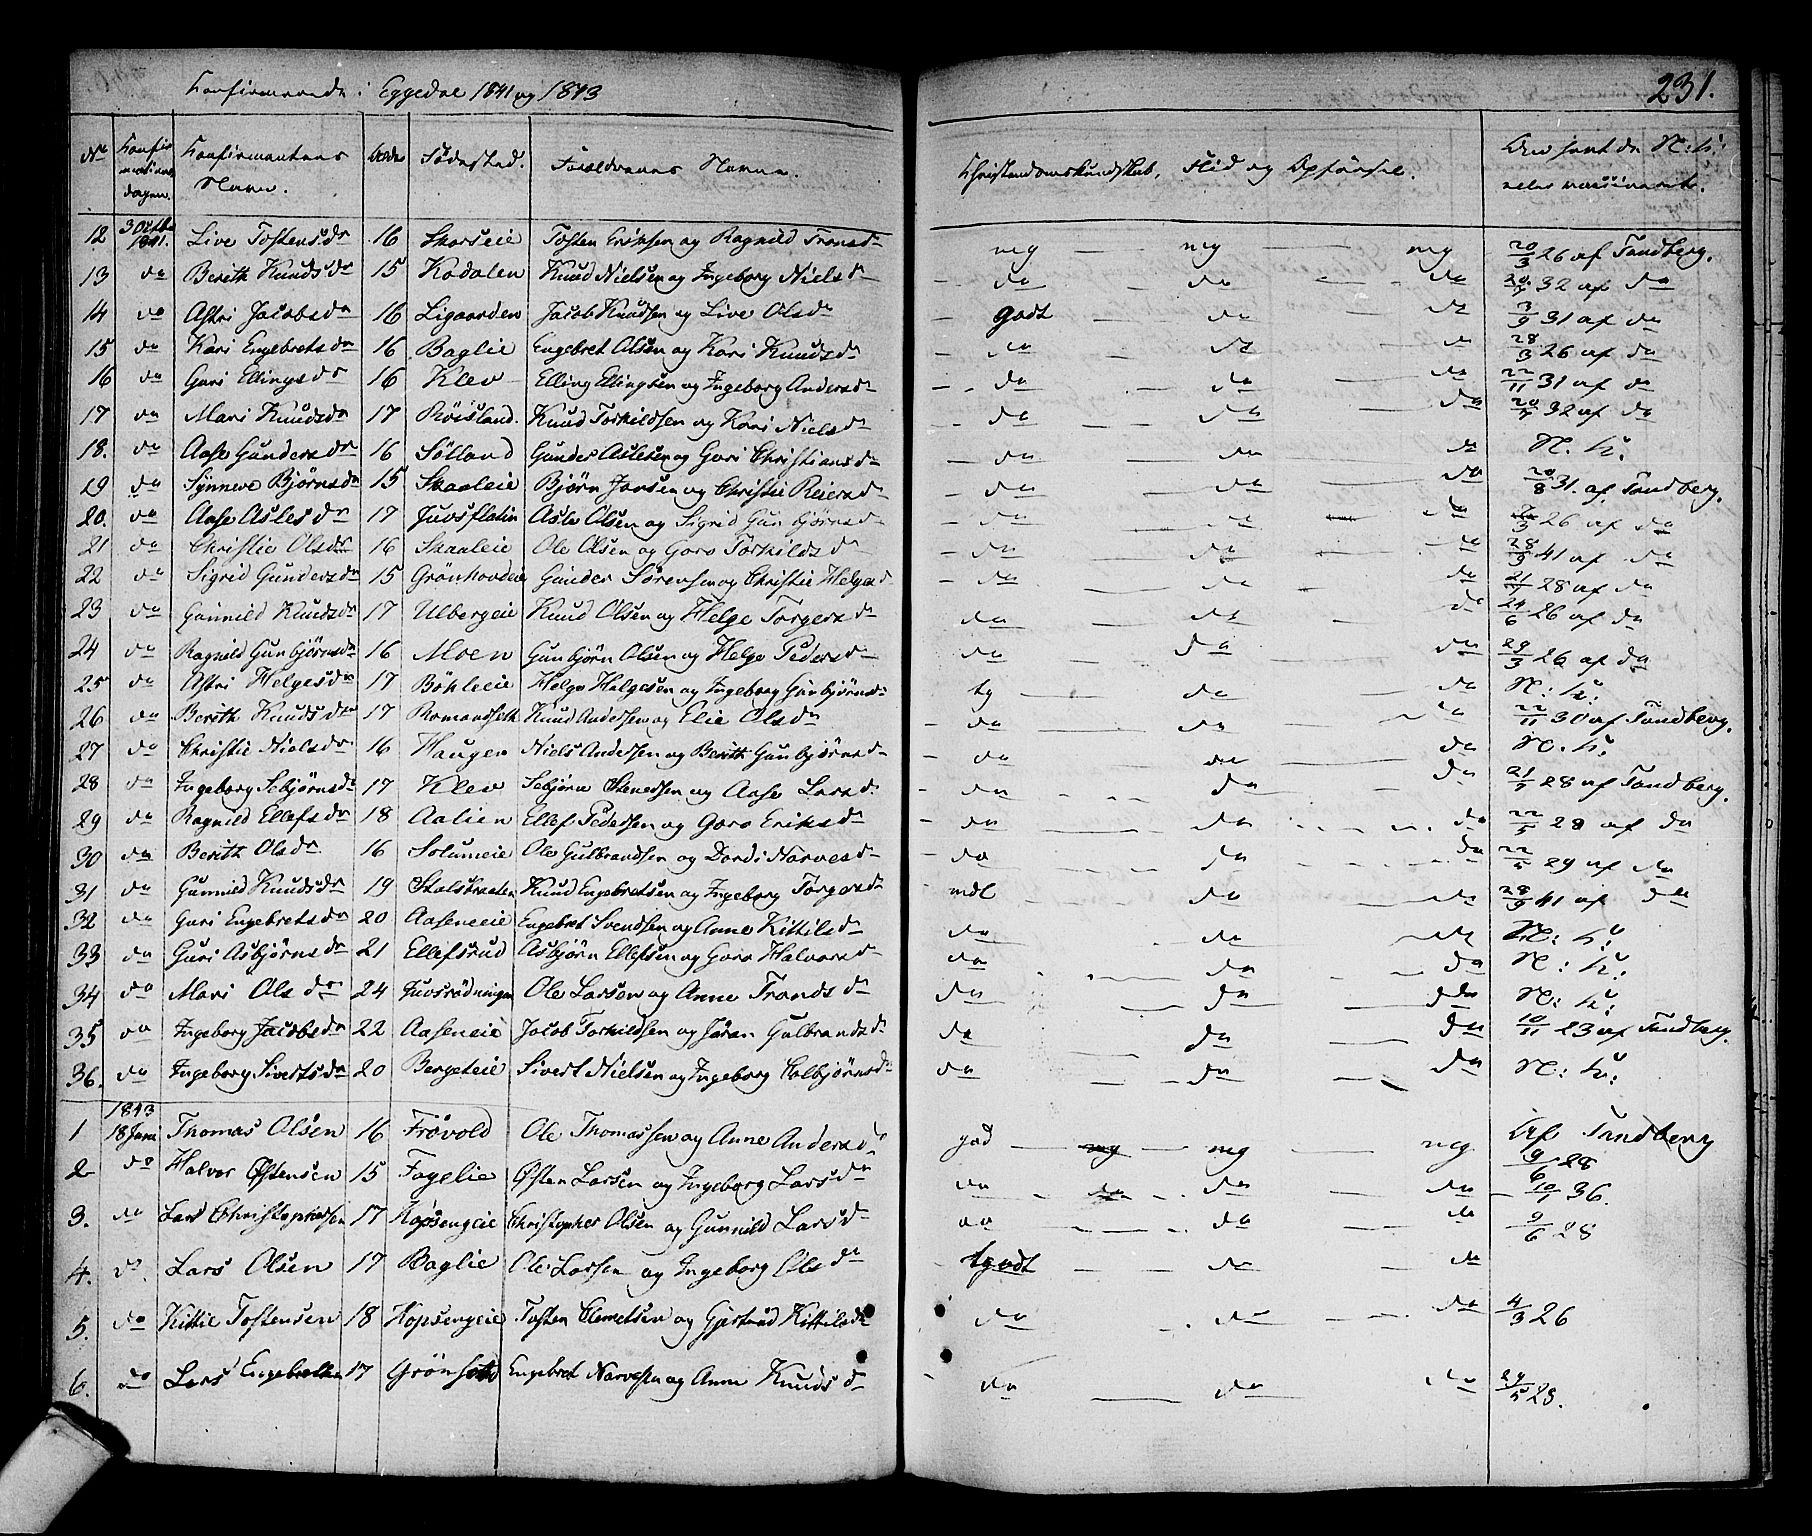 Konfirmerede i Eggedal 1841 og 1843
231.
No Konfirmations dagen. Konfirmantens Navn. Alder Födested. Forældrenes Navne. Christendomskundskab, Flid og Opförsel. N: h: eller vaccineret.
12 3 Octb 1841. Live Tostensdr 16 Skorseie Tosten Eriksen og Ragnild Tronsdr meg — meg — meg 20/3 26 af Tandberg.
13 do Berith Knudsdr 15 Kodalen Knud Nielsen og Ingeborg Nielsdr — do — do — do 32 af do
14 do Astri Jacobsdr 16 Ligaarden Jacob Knudsen og Live Olsdr — godt — do — do 3/9 31 af do
15 do Kari Engebretsdr 16 Baglie Engebret Olsen og Kari Knudsdr — do — do — do 28/3 26 af do
16 do Guri Ellingsdr 16 Klev Elling Ellingsen og Ingeborg Andersdr — do — do — do 22/11 31 af do
17 do Mari Knudsdr 17 Röisland. Knud Torkildsen og Kari Nielsdr — do — do — do 32 af do
18. do Aase Gundersdr 16 Sölland Gunder Aslesen og Gori Christiansdr — do — do — do N. h:
19 do Synneve Bjørnsdr 15 Skaaleie Bjørn Jonsen og Christie Reiersdr — do — do — do 20/8 31. af Tandberg.
20. do Aase Aslesdr 17 Juvsflatin Asle Olsen og Sigrid Gunbjørnsdr — do — do — do 26 af do
21 do Christie Olsdr 16 Skaaleie Ole Olsen og Goro Torkildsdr — do — do — do 28/9 41 af do
22 do Sigrid Gundersdr 15 Grönhovdeie Gunder Sørensen og Christie Helgesd — do — do — do 28 af do
23 do Gunnild Knudsdr 17 Ulbergeie Knud Olsen og Helge Torgersdr do — do — do 24/6 26 af do
24 do Ragnild Gunbjørnsdr 16 Moen Gunbjörn Olsen og Helge Pedersdr do — do — do 29/3 26 af do
25 do Astri Helgesdr 17 Böhleeie Helge Helgesen og Ingeborg Gunbjørnsdr tg — do — do N: h:
26 do Berith Knudsdr 17 Romandseth Knud Andersen og Elie Olsdr — do — do — do 22/11 30 af Tandberg.
27 do Christie Nielsdr 16 Haugen Niels Andersen og Berith Gunbjørnsdr — do — do — do N. h:
28 do Ingeborg Sebjørnsdr 17 Klev Sebjørn Stenedsen og Aase Larsdr — do — do — do 28 af Tandberg.
29 do Ragnild Ellefsdr 18 Aalien Ellef Pedersen og Goro Eriksdr — do — do — do 22/5 28 af do
30 do Berith Olsdr. 16 Solumeie Ole Gulbrandsen og Dordi Narvesdr — do — do — do 22/5 29 af do
31 do Gunnild Knudsdr 19 Stolsbraaten Knud Engebretsen og Ingeborg Torgersdr — mdl — do — do 28/9 41 af do
32 do Guri Engebretsdr 20 Aaseneeie Engebret Svendsen og Anne Kittilsdr do — do — do N: h:
33 do Guri Asbjørnsdr 21 Ellefsrud Asbjørn Ellefsen og Goro Halvorsdr do — do — do N: h:
34 do Mari Olsdr 24 Juvsrødningen Ole Larsen og Anne Trondsdr do — do — do N: h:
35 do Ingeborg Jacobsdr 22 Aaseneeie Jacob Torkildsen og Jöran Gulbrandsdr do — do — do 10/11 23 af Tandberg.
36. do Ingeborg Sivertsdr 20 Bergeteie Sivert Nielsen og Ingeborg Colbjørnsdr do — do — do N: h:
1 1843 18 Juni Thomas Olsen 16 Frövold Ole Thomassen og Anne Andersdr god — meg — meg — meg Af Tandberg 9/6 28
2 do Halvor Østensen 15 Fagelie Østen Larsen og Ingeborg Larsdr do — do — do — do 36.
3. do Lars Christophersen 17 Kopsengeie Christopher Olsen og Gunnild Larsdr do — do — do 9/6 28
4. do Lars Olsen 17 Baglie Ole Larsen og Ingeborg Olsdr tgodt — do — do
5. do Kittil Tostensen 18 Kopsengeie Tosten Clemetsen og Gjertrud Kittilsdr do — do — do 4/3 26
6. do Lars Engebretsen 17 Grönset Engebret Narvesen og Anne Knudsdr do — do — do 29/5 28.